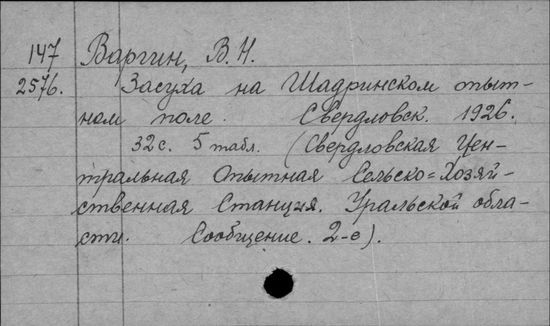 147 Варгин, В. Н.
2576. Засуха на Шадринском опыт-
ном поле. Свердловск. 1926.
32 с. 5 табл. (Свердловская Цен-
тральная Опытная Сельско=Хозяй-
ственная Станция. Уральской обла-
сти. Сообщение. 2-е).